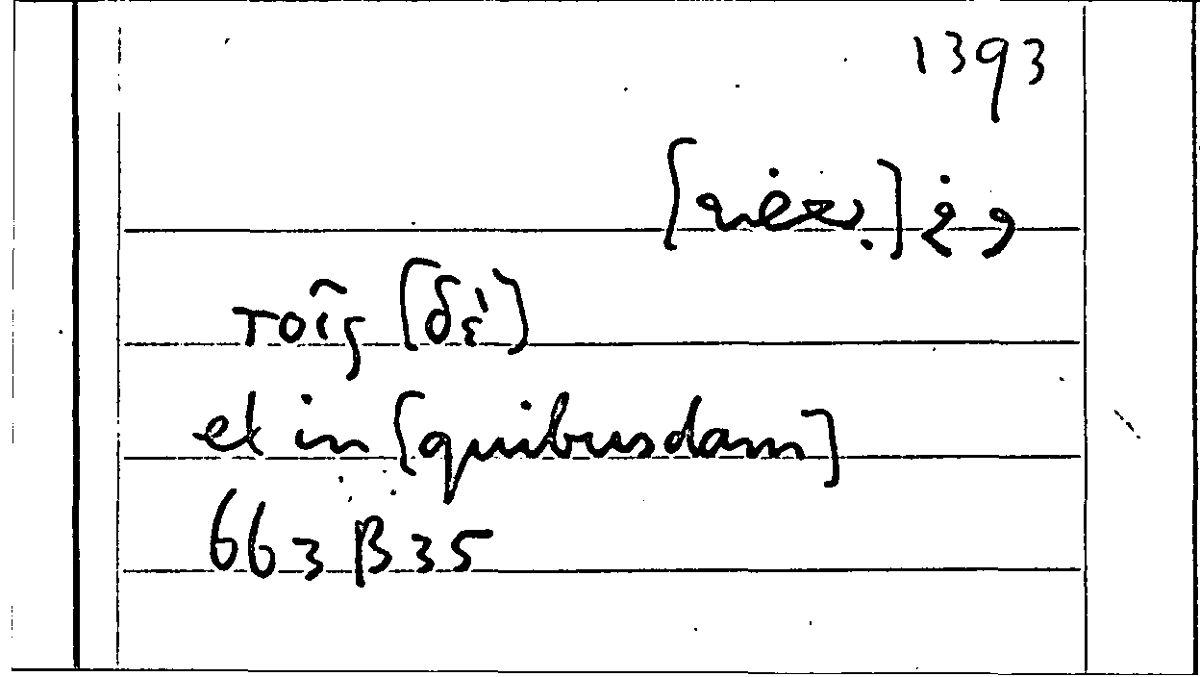 1393
τοῖς [δὲ]
et in [quibusdam]
663 β 35